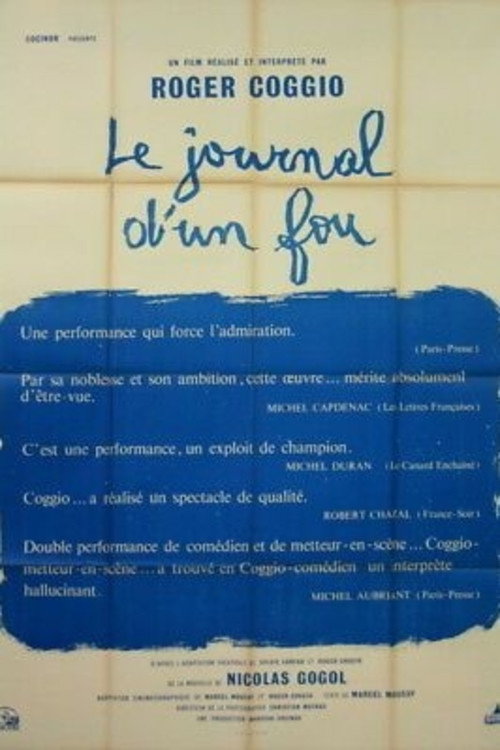 COCINOR PRESENTE
UN FILM RÉALISÉ ET INTERPRÉTÉ PAR
ROGER COGGIO
Le journal
d'un fou
Une performance qui force l'admiration.
(Paris-Presse)
Par sa noblesse et son ambition, cette œuvre... mérite absolument
d'être vue.
MICHEL CAPDENAC (Les Lettres Françaises)
C'est une performance, un exploit de champion.
MICHEL DURAN (Le Canard Enchaîné)
Coggio... a réalisé un spectacle de qualité.
ROBERT CHAZAL (France-Soir)
Double performance de comédien et de metteur-en-scène... Coggio-
metteur-en-scène... a trouvé en Coggio-comédien un interprète
hallucinant.
MICHEL AUBRIANT (Paris-Presse)
D'APRÈS L'ADAPTATION THÉATRALE DE SYLVIE LUNEAU ET ROGER COGGIO
DE LA NOUVELLE DE NICOLAS GOGOL
ADAPTATION CINÉMATOGRAPHIQUE DE MARCEL MOUSSY ET ROGER COGGIO TEXTE DE MARCEL MOUSSY
DIRECTEUR DE LA PHOTOGRAPHIE CHRISTIAN MATRAS
UNE PRODUCTION